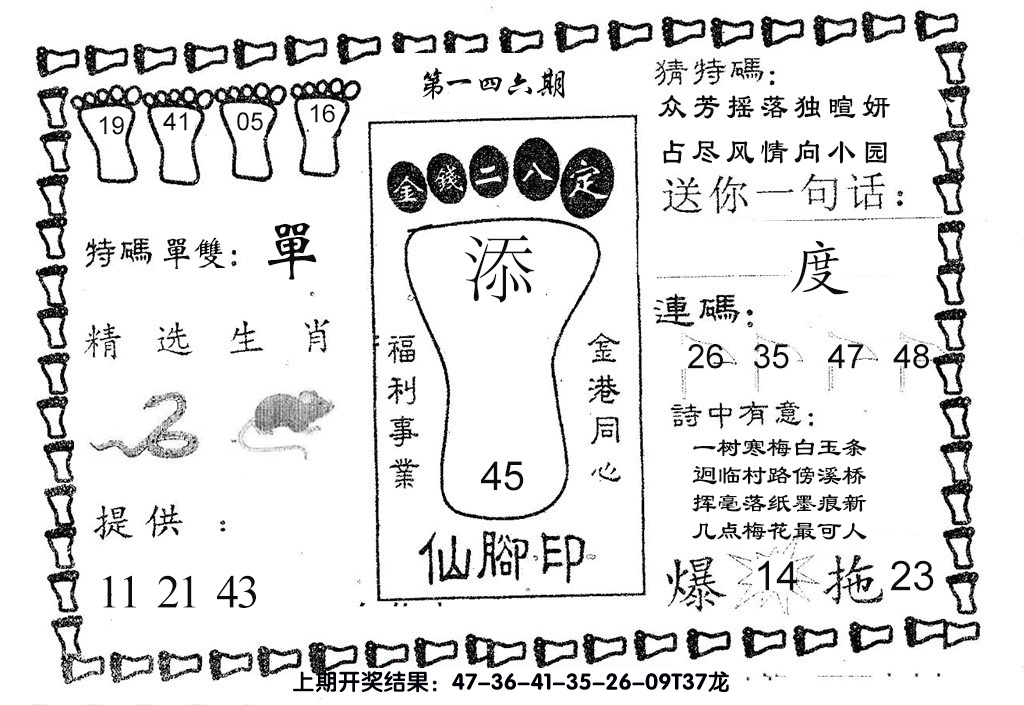 第一四六期
19 41 05 16
特碼單雙：單
精选生肖
提供：
11 21 43
金錢二八定
添
福利事業
金港同心
45
仙腳印
猜特碼：
众芳摇落独暄妍
占尽风情向小园
送你一句话：
度
連碼：
26 35 47 48
詩中有意：
一树寒梅白玉条
迥临村路傍溪桥
挥毫落纸墨痕新
几点梅花最可人
爆 14 拖 23
上期开奖结果：47-36-41-35-26-09T37龙